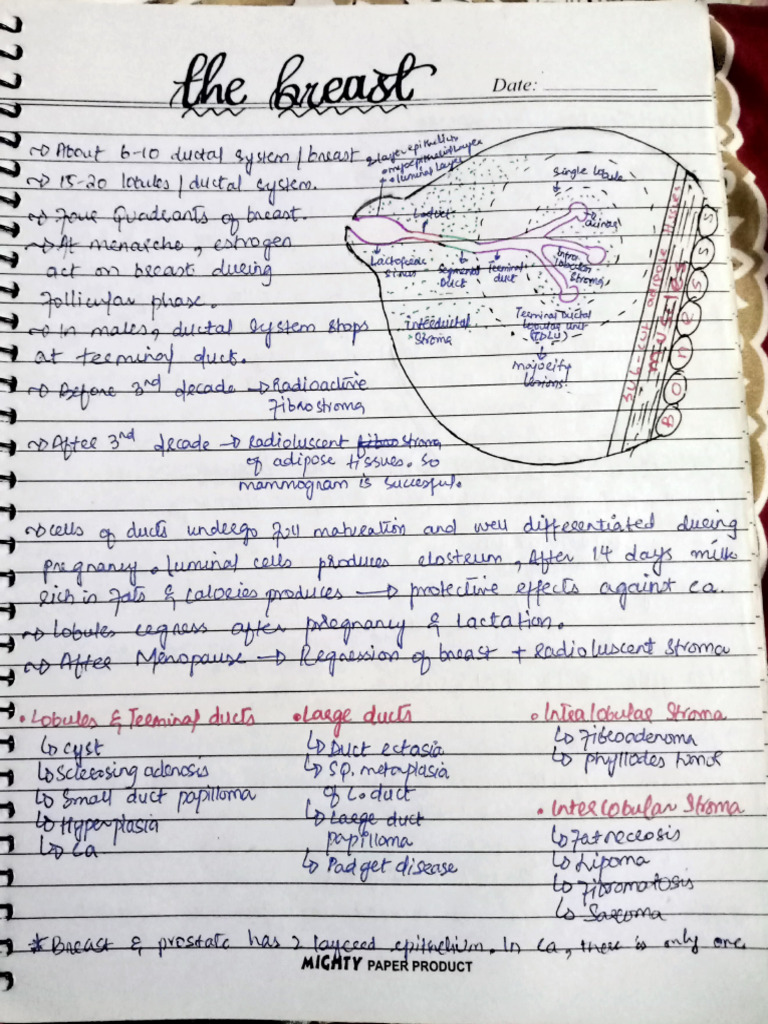 the breast
Date:
About 6-10 ductal system / breast
15-20 lobules / ductal system.
Four Quadrants of breast.
At menarche, estrogen
act on breast during
follicular phase.
In males, ductal system stops
at terminal duct.
Before 3rd decade → Radioactive
Fibrostroma
After 3rd decade → radioluscent stroma
of adipose tissues. so
mammogram is succesful.
2-layer epithelium
• myoepithelial layer
• luminal layer
Single lobule
L.duct
acinus
Lactoferic
sinus
Segmental
Duct
Terminal
duct
Intra
lobular
Stroma
interductal
Stroma
Terminal Ductal
lobular unit
(TDLU)
majority
lesions
Sub-cut adipose tissues
muscles
Bones
cells of ducts undergo full maturation and well differentiated during
pregnancy. luminal cells produces closterum, After 14 days milk
rich in fats & calories produces → protective effects against ca.
Lobules regress after pregnancy & lactation.
After Menopause → Regression of breast + radioluscent stroma
• Lobules & Terminal ducts
↳ cyst
↳ Sclerosing adenosis
↳ Small duct papilloma
↳ Hyperplasia
↳ Ca
• Large ducts
↳ Duct ectasia
↳ Sq. metaplasia
of L. duct
↳ Large duct
papilloma
↳ Padget disease
• Intralobular Stroma
↳ Fibroadenoma
↳ phyllodes tumor
• Interlobular Stroma
↳ Fat necrosis
↳ Lipoma
↳ Fibromatosis
↳ Sarcoma
* Breast & prostate has 2 layered epithelium. In ca, there is only one
MIGHTY PAPER PRODUCT